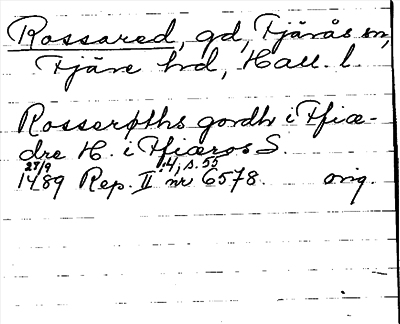 Rossared, gd, Fjärås sn,
Fjäre hd, Hall. l.
Rosserøths gordh i Ffiæ-
dre H. i Ffiæros S.
27/9 :4, s. 55
1489 Rep. II nr 6578. orig.